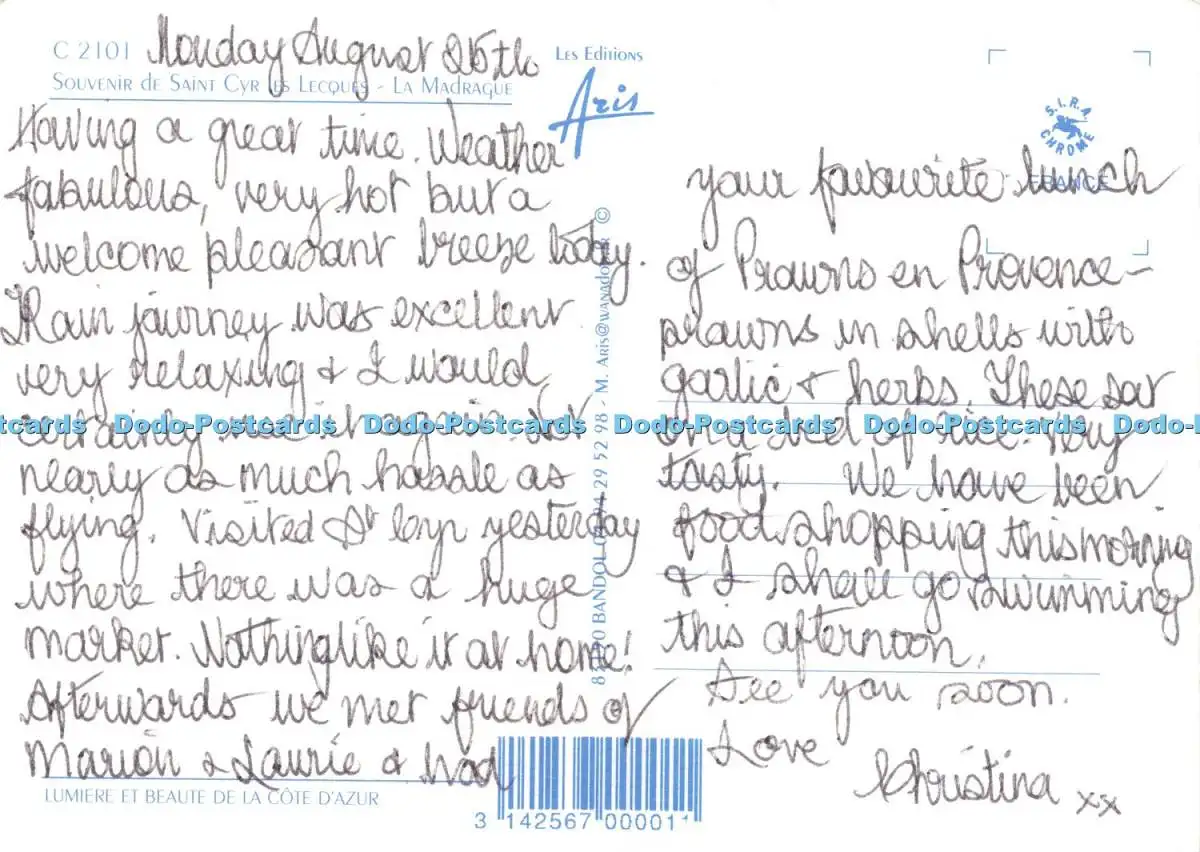 C 2101
Monday August 25th
Les Editions
Aris
SOUVENIR DE SAINT CYR LES LECQUES - LA MADRAGUE
S.I.R.A
CHROME
FRANCE
Having a great time. Weather
fabulous, very hot but a
welcome pleasant breeze today.
Train journey was excellent
very relaxing & I would
certainly use it again. Not
nearly as much hassle as
flying. Visited St Cyr yesterday
where there was a huge
market. Nothing like it at home!
Afterwards we met friends of
Marion & Laurie & had
LUMIERE ET BEAUTE DE LA CÔTE D'AZUR
BANDOL 04 94 29 52 98 - M. ARIS@WANADOO.FR ©
3 142567 00001
your favourite lunch
of Prawns en Provence -
prawns in shells with
garlic & herbs. These sat
on a bed of rice. Very
tasty. We have been
food shopping this morning
& I shall go swimming
this afternoon.
See you soon.
Love
Christina xx
Dodo-Postcards Dodo-Postcards Dodo-Postcards Dodo-Postcards